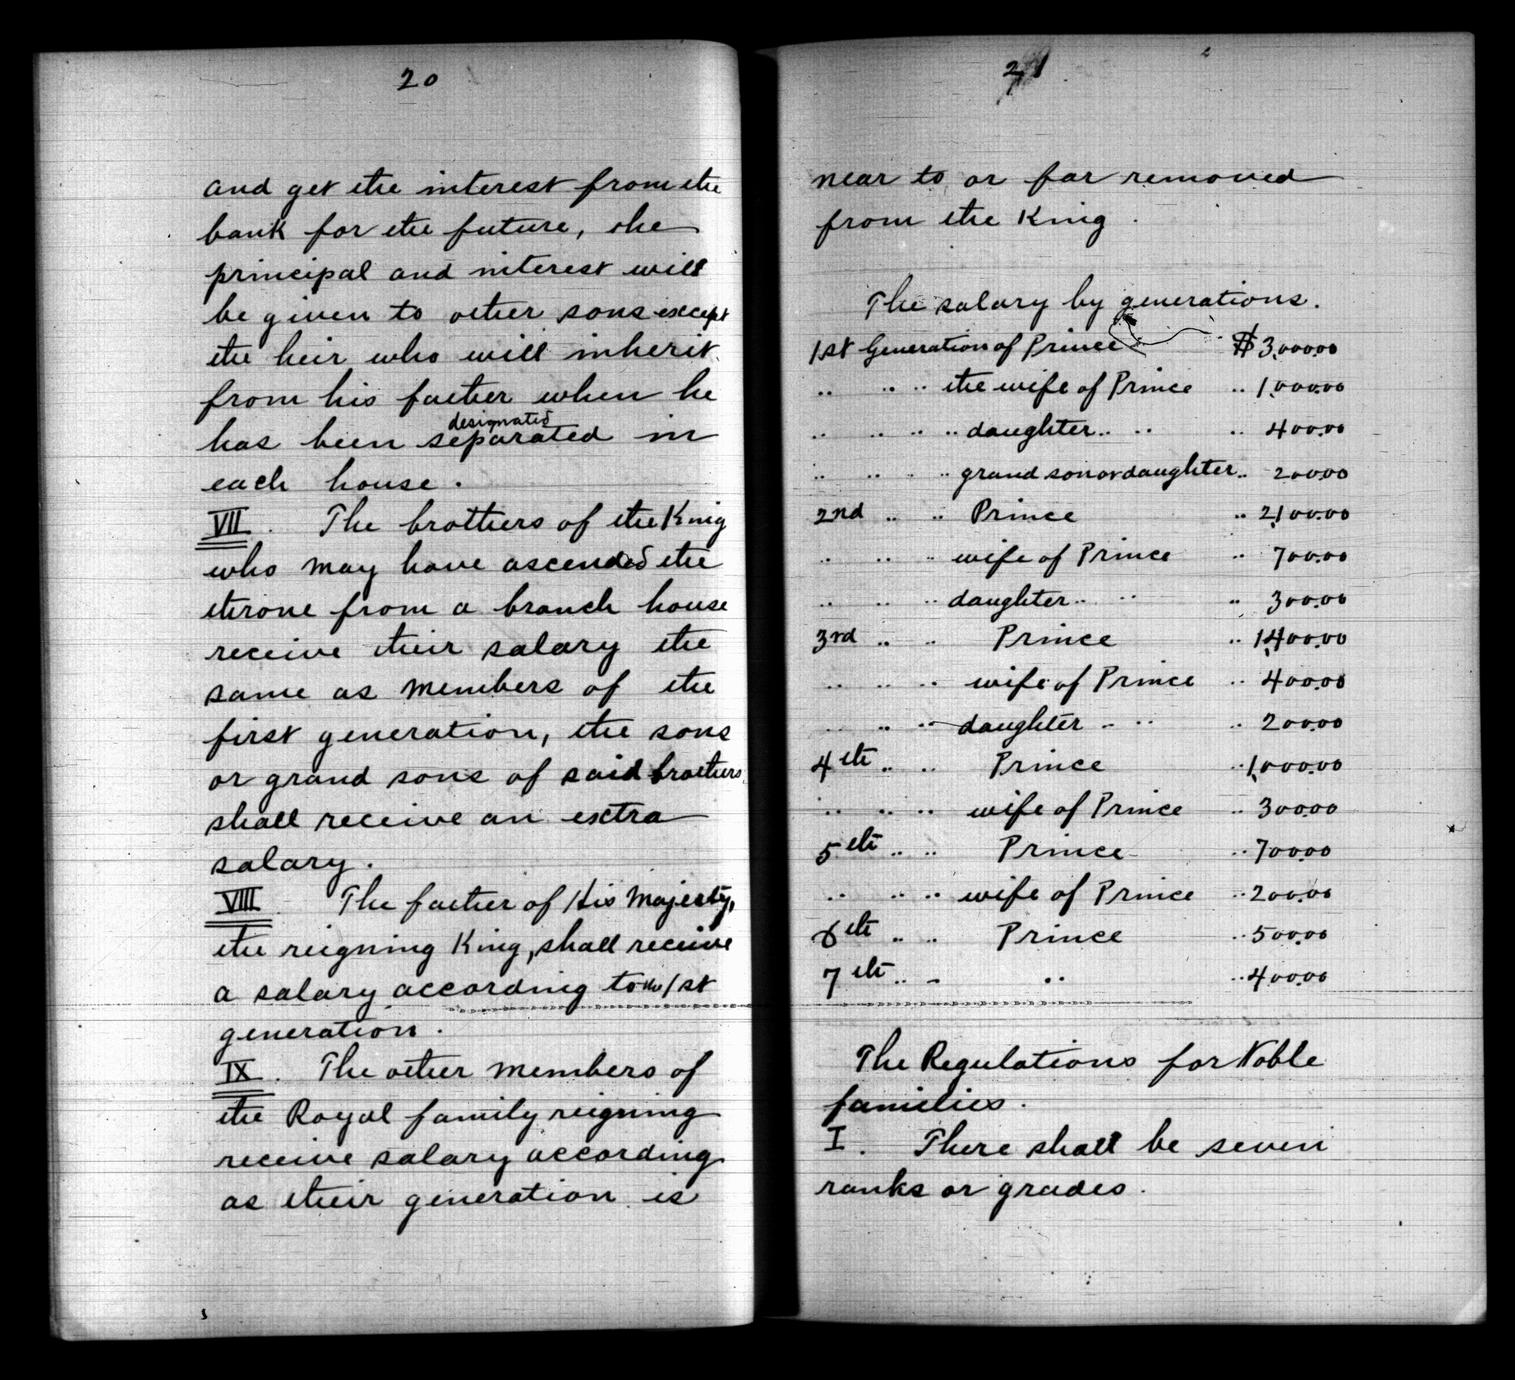 20
and get the interest from the
bank for the future, the
principal and interest will
be given to other sons except
the heir who will inherit
from his father when he
designated
has been separated in
each house.
VII. The brothers of the King
who may have ascended the
throne from a branch house
receive their salary the
same as members of the
first generation, the sons
or grand sons of said brothers
shall receive an extra
salary.
VIII. The father of His Majesty,
the reigning King, shall receive
a salary according to the 1st
generation.
IX. The other members of
the Royal family reigning
receive salary according
as their generation is
21
near to or far removed
from the King.
The salary by generations.
1st Generation of Prince $3,000.00
.. .. .. the wife of Prince .. 1,000.00
.. .. .. .. daughter .. .. .. 400.00
.. .. .. grand son or daughter .. 200.00
2nd .. .. Prince .. 2,100.00
.. .. .. wife of Prince .. 700.00
.. .. .. daughter .. .. .. 300.00
3rd .. .. Prince .. 1,400.00
.. .. .. wife of Prince .. 400.00
.. .. .. daughter .. .. .. 200.00
4th .. .. Prince .. 1,000.00
.. .. .. wife of Prince .. 300.00
5th .. .. Prince .. 700.00
.. .. .. wife of Prince .. 200.00
6th .. .. Prince .. 500.00
7th .. .. .. .. 400.00
The Regulations for Noble
families.
I. There shall be seven
ranks or grades.